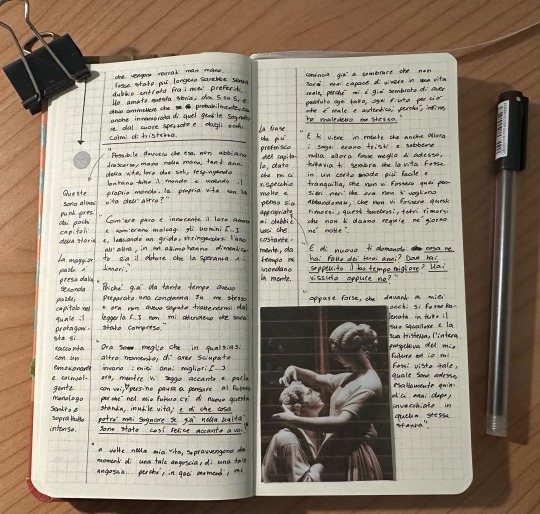 che vengono narrati man mano
fosse stato più longevo sarebbe senza
dubbio entrato fra i miei preferiti.
Ho amato questa storia, da S su S, e
devo ammettere che se probabilmente
anche innamorata di quel gentile sognato
re dal cuore spezzato e dagli occhi
colmi di tristezza.
Queste
sono alcuni
punti presi
dai pochi
capitoli
della storia
La maggior
parte è
presa dalla
seconda
parte,
capitolo nel
quale il
protagoni-
sta si
racconta
con un
emozionante
e coinvol-
gente
monologo
sentito e
soprattutto
intenso.
"Possibile davvero che essi non abbiano
trascorso, mano nella mano, tanti anni
della vita, loro due soli, respingendo
lontano tutto il mondo e unendo il
proprio mondo, la propria vita con la
vita dell'altro?"
Com'era puro e innocente il loro amore
e com'erano malvagi gli uomini [..]
e, lanciando un grido, stringendosi l'uno
all'altra, in un attimo hanno dimentica-
to sia il dolore che la
timori."
"Poiché già da tante tempo avevo
preparato una condanna su me stesso
e ora non avevo saputo trattenermi dal
leggerla [..] non mi attendevo che sarei
stato compreso."
"Ora so meglio che in qualsiasi
altro momento, di aver sciupato
invano i miei anni migliori [...]
ora, mentre vi seggo accanto e parlo
con voi, perfino paura a pensare al futuro,
perché nel mio futuro c'è di nuovo questa
stantia, inutile vita; e di che cosa
potrò mai sognare se già nella realtà
sono stato così felice accanto a voi!"
"a volte nella mia vita, sopravvengono dei
momenti di una tale angoscia, di una tale
angoscia... perché, in quei momenti, mi
comincia già a sembrare che non
sarò mai capace di vivere in una vita
reale, perché mi è già sembrato di aver
perduto ogni tatto, ogni fiuto per ciò
che è reale e autentico, perché, infine,
ho maledetto me stesso."
La frase
che più
preferisco
del capito-
lo, dato
che mi ci
rispecchio
molto e
penso sia
appropriata
ai dubbi e
voci che
costante-
mente, da
tempo mi
inondano
la mente.
"E ti viene in mente che anche allora
i sogni erano tristi e sebbene
nulla allora fosse meglio di adesso,
tuttavia ti sembra che la vita fosse
in un certo modo più facile e
tranquilla, che non vi fossero quei pen-
sieri neri che ora non ti vogliono
abbandonare, che non vi fossero questi
rimorsi, questi tenebrosi, tetri rimorsi
che non ti danno requie né giorno
né notte."
"E di nuovo ti domandi: cosa ne
hai fatto dei tuoi anni? Dove hai
seppellito il tuo tempo migliore? Hai
vissuto oppure no?"
"oppure forse, che davanti a miei
occhi si fosse ba-
lenata in tutto il
suo squallore e la
sua tristezza, l'intera
prospettiva del mio
futuro ed io mi
fossi visto tale,
quale sono adesso,
esattamente quin-
dici anni dopo,
invecchiato in
quella stessa
stanza".